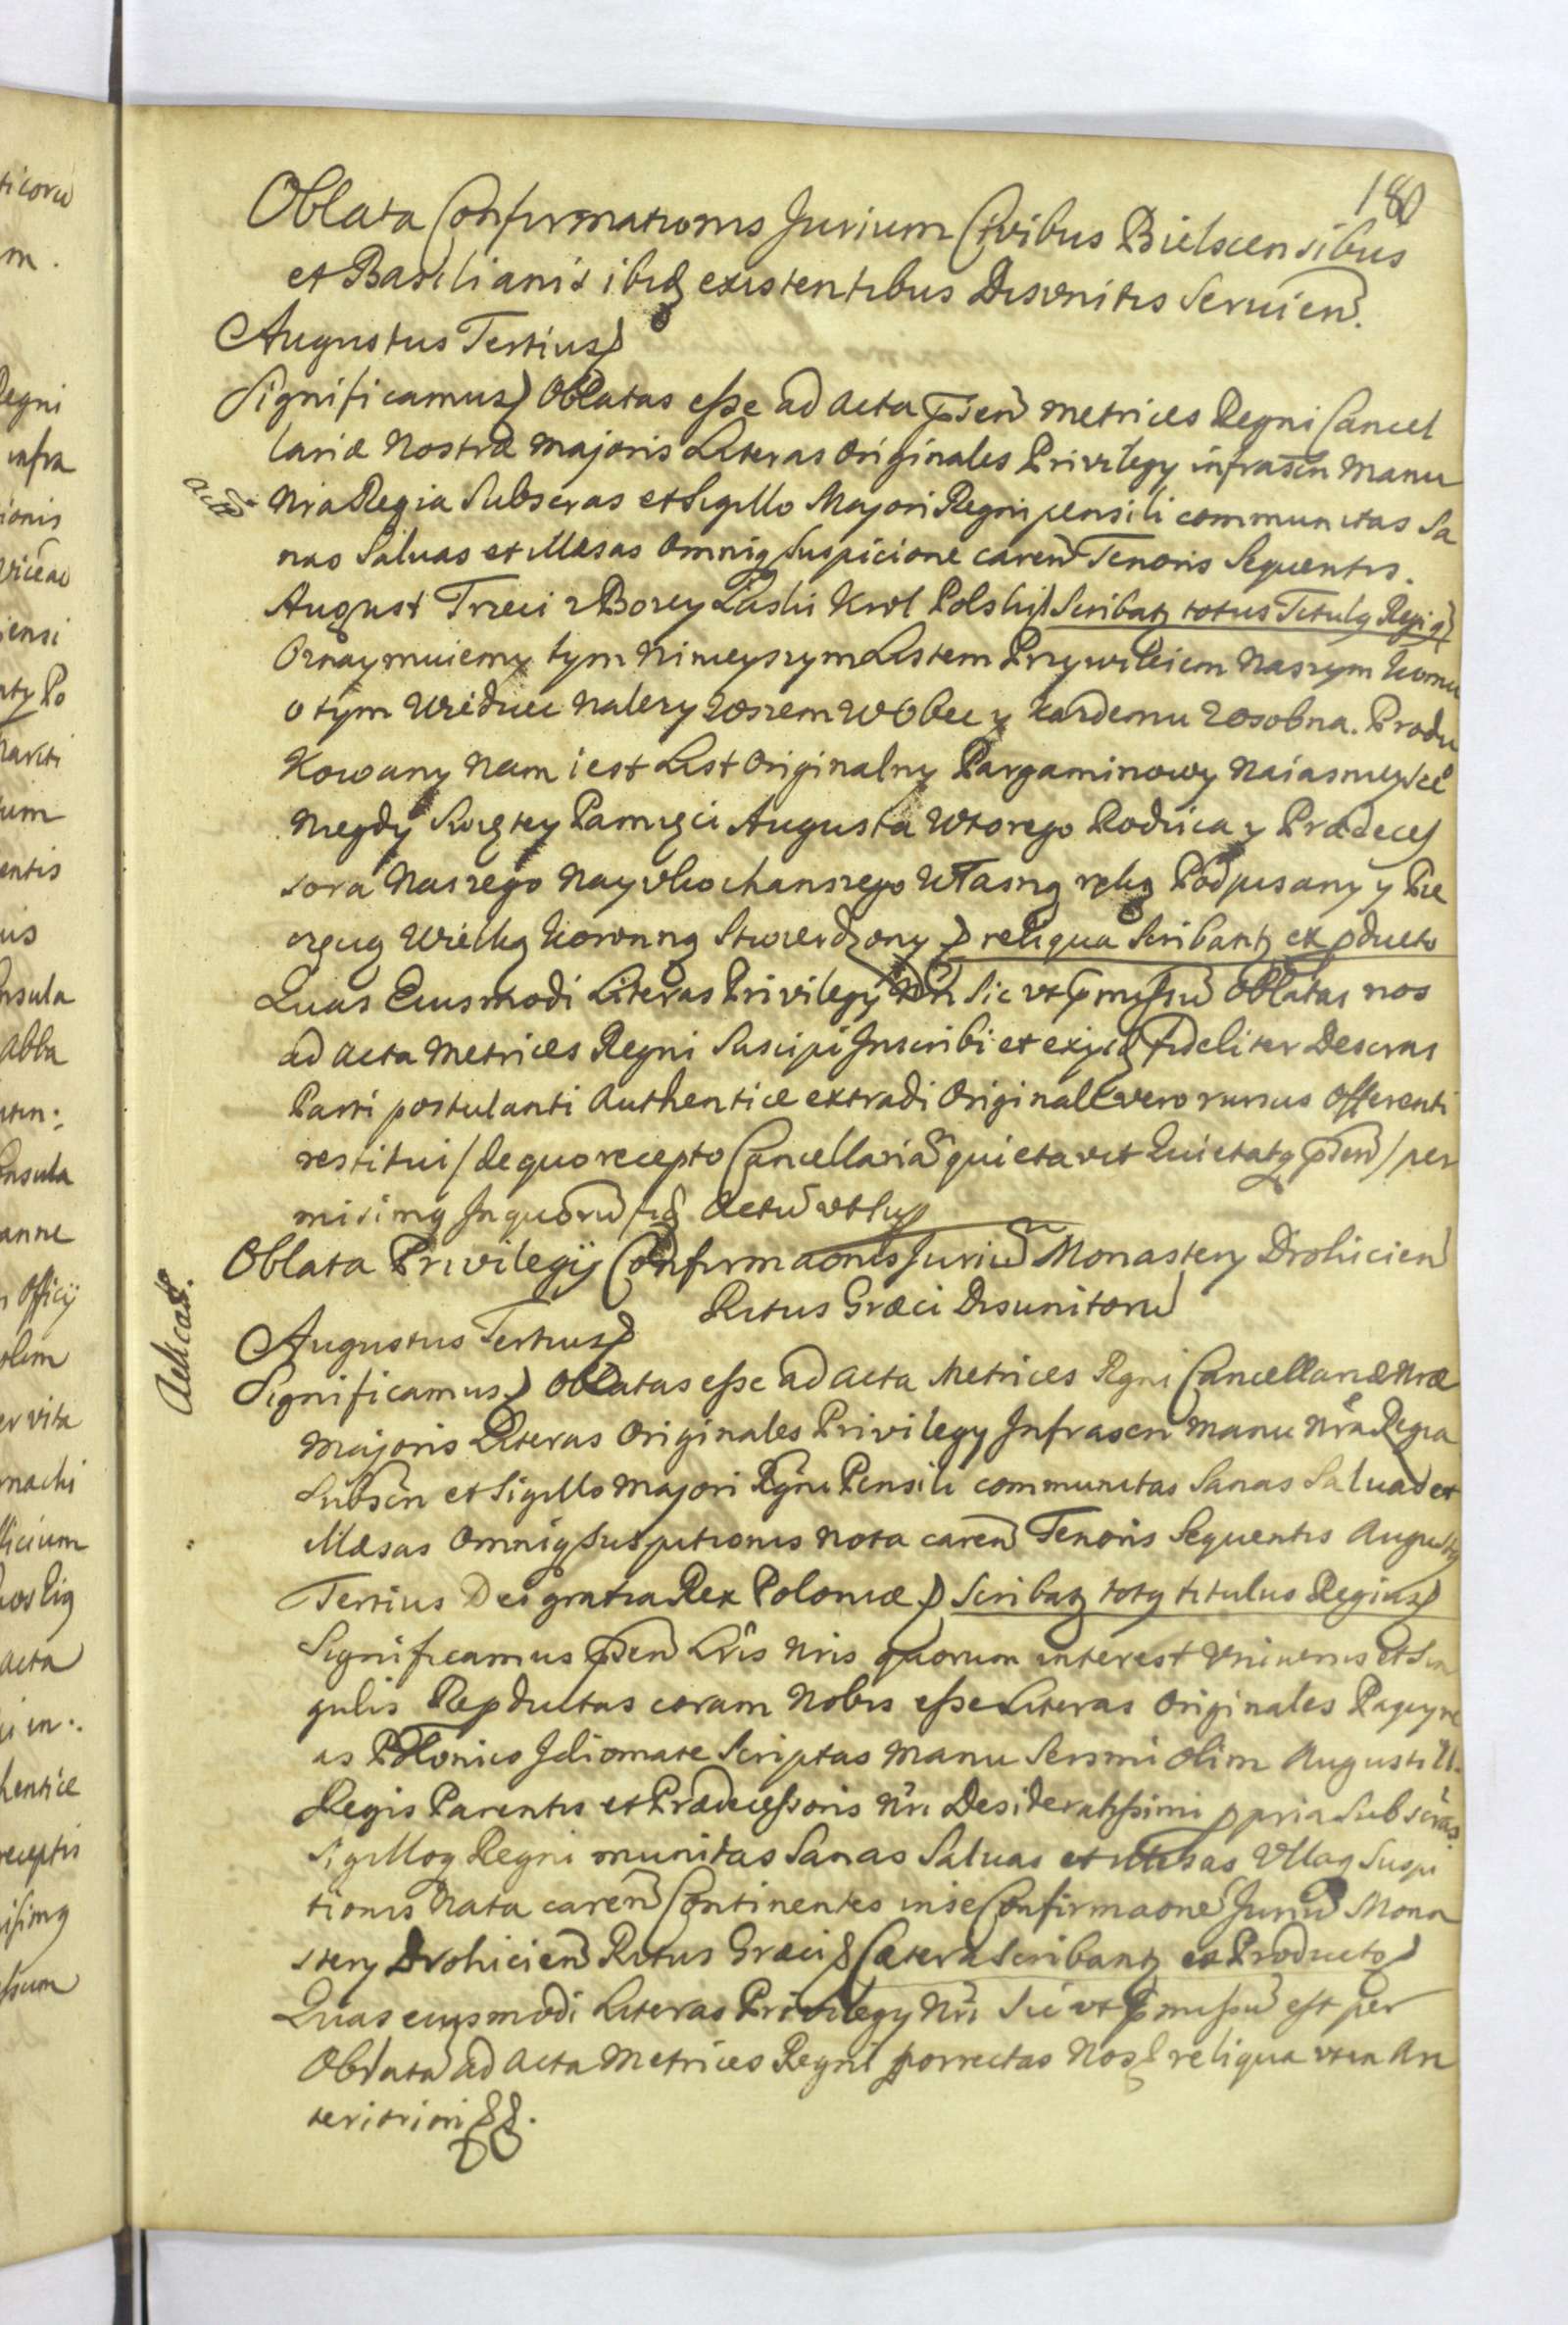 180
Oblata Confirmationis Jurium Civibus Bielscensibus
et Basilianis ibid existentibus Disunitis Servien.
Augustus Tertius
Significamus Oblatas esse ad Acta pñen Metrices Regni Cancel
lariæ Nostræ Majoris Literas Originales Privilegy infrascn Manu
Nra Regia Subscras et Sigillo Majori Regni pensili communitas Sa
nas Saluas et Illæsas Omniq Suspicione caren Tenoris Sequentis.
August Trzeci z Bozey Łaski Krol Polski Scribatz totus Titulq Regiq
Oznaymuiemy tym Ninieyszym Listem Przywileiem Naszym komu
o tym Wiedziec Nalezy Wszem W Obec y kazdemu Zosobna. Produ
kowany Nam iest List Originalny Pargaminowy Naiasnieysze
Niegdy Swiętey Pamięci Augusta Wtorego Rodzica y Prædeces
sora Naszego Nayukochanszego Własną ręką Podpisany y Pie
częcią Wielką Koronną Stwierdzony reliqua Scribantz ex pducto
Quas Eiusmodi Literas Privilegy Sic vt pmissu Oblatas nos
ad Acta Metrices Regni Suscipi Inscribi et exijsd fideliter Descras
Parti postulanti Authentice extradi Originale vero rursus Offerenti
restitui / de quo recepto Cancellaria quietavit Quietatq pñen / per
misimq In quoru fid Actu vt sup
Oblata Privilegij Confirmaonis Juriu Monastery Drohicien
Ritus Græci Disunitoru
Augustus Tertius
Significamus Oblatas esse ad Acta Metrices Rgni Cancellariæ Nræ
Majoris Literas Originales Privilegy Infrascn Manu Nra Regia
Subscn et Sigillo Majori Rgni Pensili communitas Sanas Saluas et
Illæsas Omniq Suspitionis Nota caren Tenoris Sequentis Augustq
Tertius Dei gratia Rex Poloniæ Scribatz totq titulus Regius
Significamus pñen Lris Nris quorum interest Vniversis et Sin
gulis Repductas coram Nobis esse Literas Originales
as Polonico Idiomate Scriptas Manu Sersmi olim Augusti II.
Regis Parentis et Prædecessoris Nri Desideratissimi ppria Subscras
Sigilloq Regni munitas Sanas Saluas et Illæsas Vllaq Suspi
tionis Nata caren Continentes in se Confirmaone Juriu Mona
stery Drohicien Ritus Græci Cætera Scribantz ex Producto
Quas eiusmodi Literas Privilegy Nri Sic vt pmissu est per
Oblata ad Acta Metrices Regni porrectas Nos reliqua vt in An
teriori